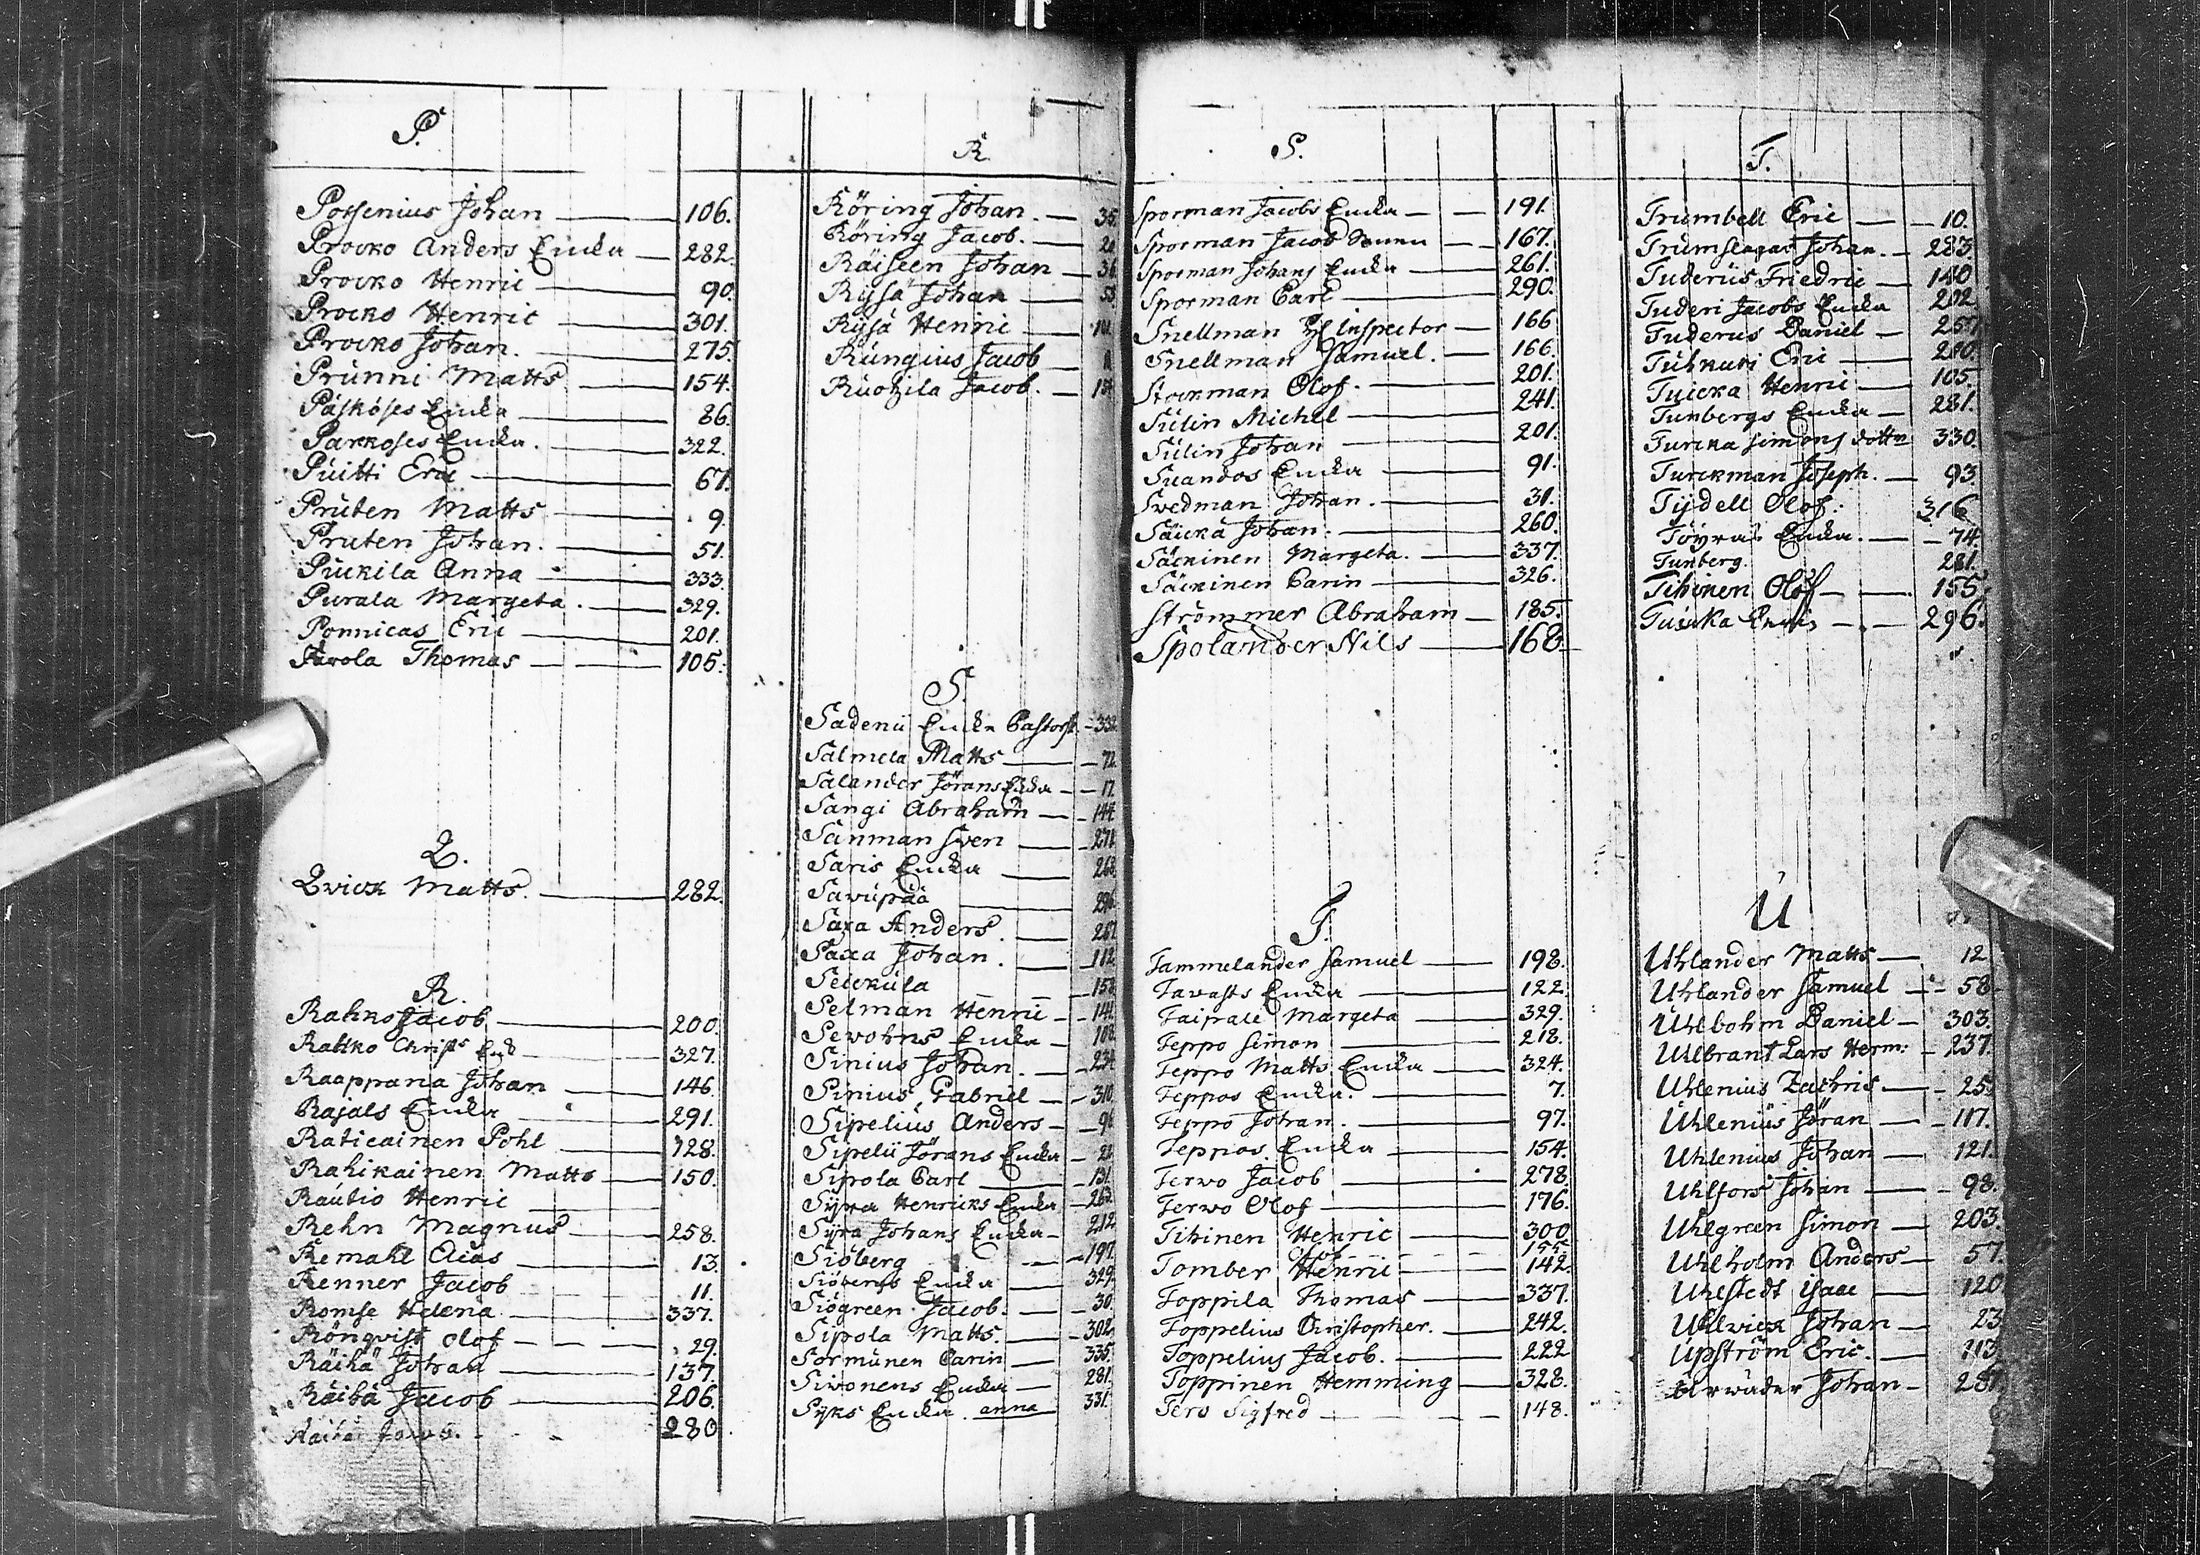 P.
Porsenius Johan 106.
Procko Anders Encka 282.
Procko Henric 90.
Procko Henric 301.
Procko Johan. 275.
Prunni Matts 154.
Påskoses Encka 86.
Parkoses Encka. 322.
Puitti Eric 67.
Pruten Matts 9.
Pruten Johan. 51.
Puckila Anna 333.
Purala Margeta. 329.
Ponnicas Eric 201.
Parola Thomas 105.
Q.
Qvick Matts. 282.
R.
Rahns Jacob 200.
Rattko Christs Enck 327.
Raappana Johan 146.
Rajals Encka 291.
Raticainen Pohl 128.
Rahikainen Matts 150.
Rautio Henric
Rehn Magnus 258.
Remahl Elias 13.
Renner Jacob 11.
Romse Helena 337.
Rönqvist Olof 29.
Räihä Johan 137.
Räihä Jacob 206.
280.
R.
Röring Johan. 35.
Röring Jacob.
Räiseen Johan
Rysä Johan
Rysä Henric
Rungius Jacob
Ruotzila Jacob.
S.
Sadenii Encka Pastorsk. 332
Salmela Matts 72
Salander Jörans Encka 17
Sangi Abraham 144
Sanman Sven 271
Saris Encka 268
Savupää 296
Saxa Anders. 267
Saxa Johan. 112
Seckula 158
Selman Henric 144
Sevohns Encka 108
Sinius Johan. 234
Sinius Gabriel 310
Sipelius Anders 96
Sipelii Jörans Encka 22
Sipola Carl 131
Syra Henricks Encka 262
Syra Johans Encka 212
Siöberg 197.
Siöbergs Encka 329.
Siögreen Jacob. 30.
Sipola Matts. 302.
Sormunen Carin 335.
Sivonens Encka 281.
Syks Encka. anna 331.
S.
Sporman Jacobs Encka 191.
Sporman Jacob 167.
Sporman Johans Encka 261.
Sporman Carl 290.
Snellman Inspector 166
Snellman Samuel. 166.
Stockman Olof. 201.
Sulin Michel 241.
Sulin Johan 201.
Suandos Encka 91.
Svedman Johan. 31.
Säcka Johan. 260.
Säckinen Margeta. 337.
Säckinen Carin 326.
Strömmer Abraham 185.
Spolander Nils 168.
T.
Tammelander Samuel 198.
Tavasts Encka 122.
Taipale Margeta 329.
Teppo Simon 218.
Teppo Matts Encka 324.
Teppos Encka. 7.
Teppo Johan. 97.
Teppos Encka 154.
Tervo Jacob 278.
Tervo Olof 176.
Tihinen Henric 300
Olof 155.
Tomber Henric 142.
Toppila Thomas 337.
Toppelius Christopher. 242.
Toppelius Jacob. 222
Toppinen Hemming 328.
Tero Sigfred 148.
T.
Trumbell Eric 10.
Trumslagar Johan. 283
Tuderus Friedric 140
Tuderi Jacobs Encka 202
Tuderus Daniel 257
Tuhkuri Eric 280.
Tuicka Henric 105
Tunbergs Encka 281.
Turcka Simons dotter 330.
Turckman Joseph. 93.
Tydell Olof. 316
Töyräs Encka. 74
Tunberg. 281.
Tihinen Olof 155.
Tuicka 296.
U
Uhlander Matts 12
Uhlander Samuel 58
Uhlbohm Daniel 303.
Uhlbrant Lars Herm: 237.
Uhlenius Zachris 25
Uhlenius Jöran 117.
Uhlenius Johan 121.
Uhlfors Johan 98.
Uhlgreen Simon 203.
Uhlholm Anders 57.
Uhlstedt Isaac 120
Uhlvick Johan 23
Upström Eric. 113
Urwäder Johan 281